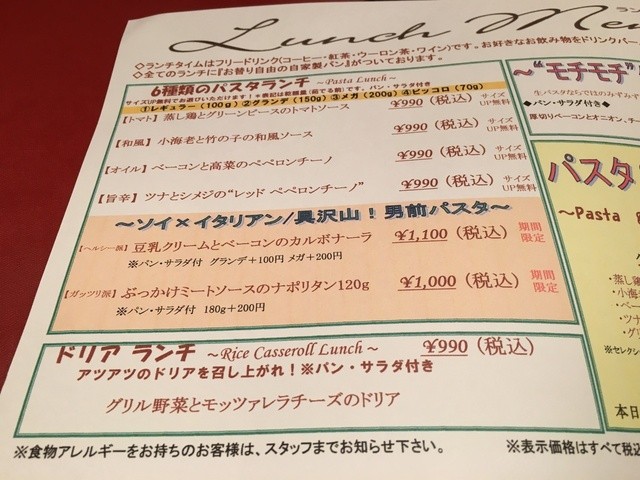 Lunch Me
◇ランチタイムはフリードリンク(コーヒー・紅茶・ウーロン茶・ワイン)です。お好きなお飲み物をドリンクバー
◇全てのランチに『お替り自由の自家製パン』がついております。
6種類のパスタランチ ～Pasta Lunch～
サイズUP無料でお選びいただけます！※表記は乾麺量(茹でる前)です。パン・サラダ付き
①レギュラー(100g) ②グランデ(150g) ③メガ(200g) ④ピッコロ(70g)
【トマト】蒸し鶏とグリーンピースのトマトソース ¥990(税込) サイズUP無料
【和風】小海老と竹の子の和風ソース ¥990(税込) サイズUP無料
【オイル】ベーコンと高菜のペペロンチーノ ¥990(税込) サイズUP無料
【旨辛】ツナとシメジの“レッド ペペロンチーノ” ¥990(税込) サイズUP無料
～ソイ×イタリアン/具沢山！男前パスタ～
【ヘルシー派】豆乳クリームとベーコンのカルボナーラ ¥1,100(税込) 期間限定
※パン・サラダ付 グランデ+100円 メガ+200円
【ガッツリ派】ぶっかけミートソースのナポリタン120g ¥1,000(税込) 期間限定
※パン・サラダ付 180g+200円
ドリア ランチ ～Rice Casseroll Lunch～ ¥990(税込)
アツアツのドリアを召し上がれ！※パン・サラダ付き
グリル野菜とモッツァレラチーズのドリア
※食物アレルギーをお持ちのお客様は、スタッフまでお知らせ下さい。
※表示価格はすべて税込
～“モチモチ”
生パスタならではのみずみず
◆パン・サラダ付き◆
厚切りベーコンとオニオン、チー
パスタ
～Pasta
・蒸し鶏
・小海老
・ベー
・ツナ
・グリ
※セレク
本日